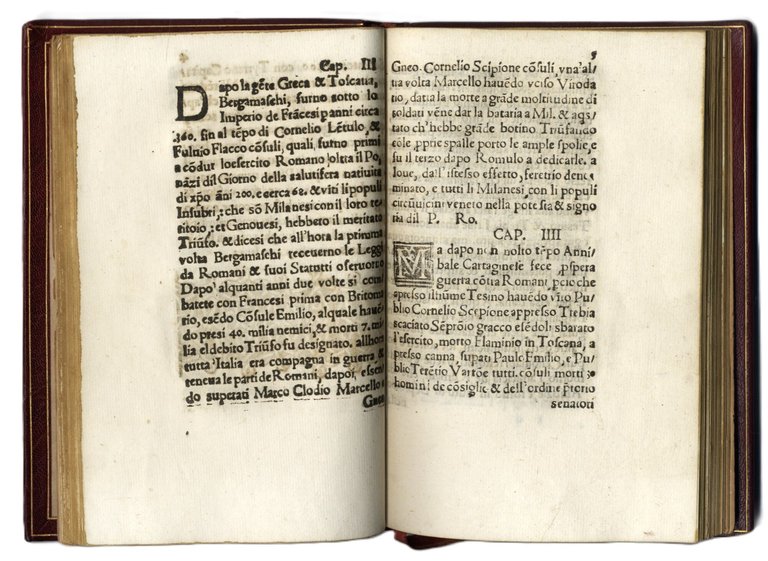 Cap. III
Dapo la gẽte Greca & Toscana,
Bergamaschi, furno sotto lo
Imperio de Frãcesi p anni circa
360. fin al tẽpo di Cornelio Lẽtulo, &
Fuluio Flacco cõsuli, quali, furno primi
a cõdur loesercito Romano oltra il Po,
nãzi dil Giorno della salutifera natiuita
di xp̃o ãni 200. e cerca 68. & vĩti li populi
Insubri, che sõ Milanesi con il loro ter
ritoio, et Genouesi, hebbero il meritato
Triũfo. & dicesi che all'hora la primma
volta Bergamaschi receuerno le Leggi
da Romani & suoi Statutti oseruorno
Dapo' alquanti anni due volte si com
batete con Francesi prima con Britoma
rio, esẽdo Cõsule Emilio, alquale hauẽ
do presi 40. milia nemici, & morti 7. mi
lia el debito Triũfo fu designato. allhora
tutt'Italia era compagna in guerra &
teneua le parti de Romani, dapoi, essen
do superati Marco Clodio Marcello e
Gneo
5
Gneo. Cornelio Scipione cõsuli, vna'al
tra volta Marcello hauẽdo verso Virođa
ro, datia la morte a grãde moltitudine di
soldati vẽne dar la bataria a Mil. & aqs
tato ch'hebbe grãde botino Triũfando
cõle, pprie spalle porto le ample spolie, e
fu il terzo dapo Romulo a dedicarle. a
Ioue, dall'istesso effetto, feretrio deno
minato, e tutti li Milanesi, con li populi
circũuicini veneto nella potesta & signo
ria dil P. Ro.
CAP. IIII
Ma dapo non molto tẽpo Anni
bale Cartaginese fece, pspera
guerra cõtra Romani, pcio che
apresso il fiume Tesino hauẽdo vĩto Pu
blio Cornelio Scepione appresso Trebia
scaciato Sẽprõio gracco esẽdoli sbarato
l'esercito, morto Flaminio in Toscana, a
presso canna, supati Paulo Emilio, e Pu
blio Terẽtio Vartõe tutti. cõsuli morti
homini de cõsiglio & dell'ordine p̃torio
senatori